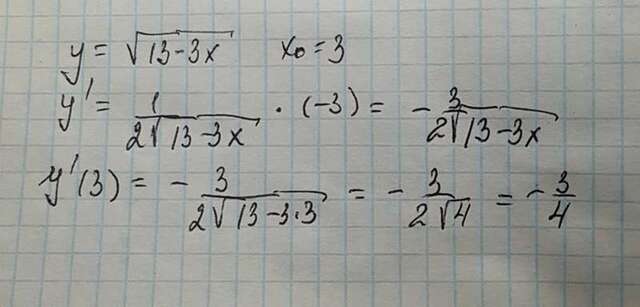 y = √(13-3x) x₀ = 3
y' = 1/(2√(13-3x)) · (-3) = - 3/(2√(13-3x))
y'(3) = - 3/(2√(13-3·3)) = - 3/(2√4) = - 3/4